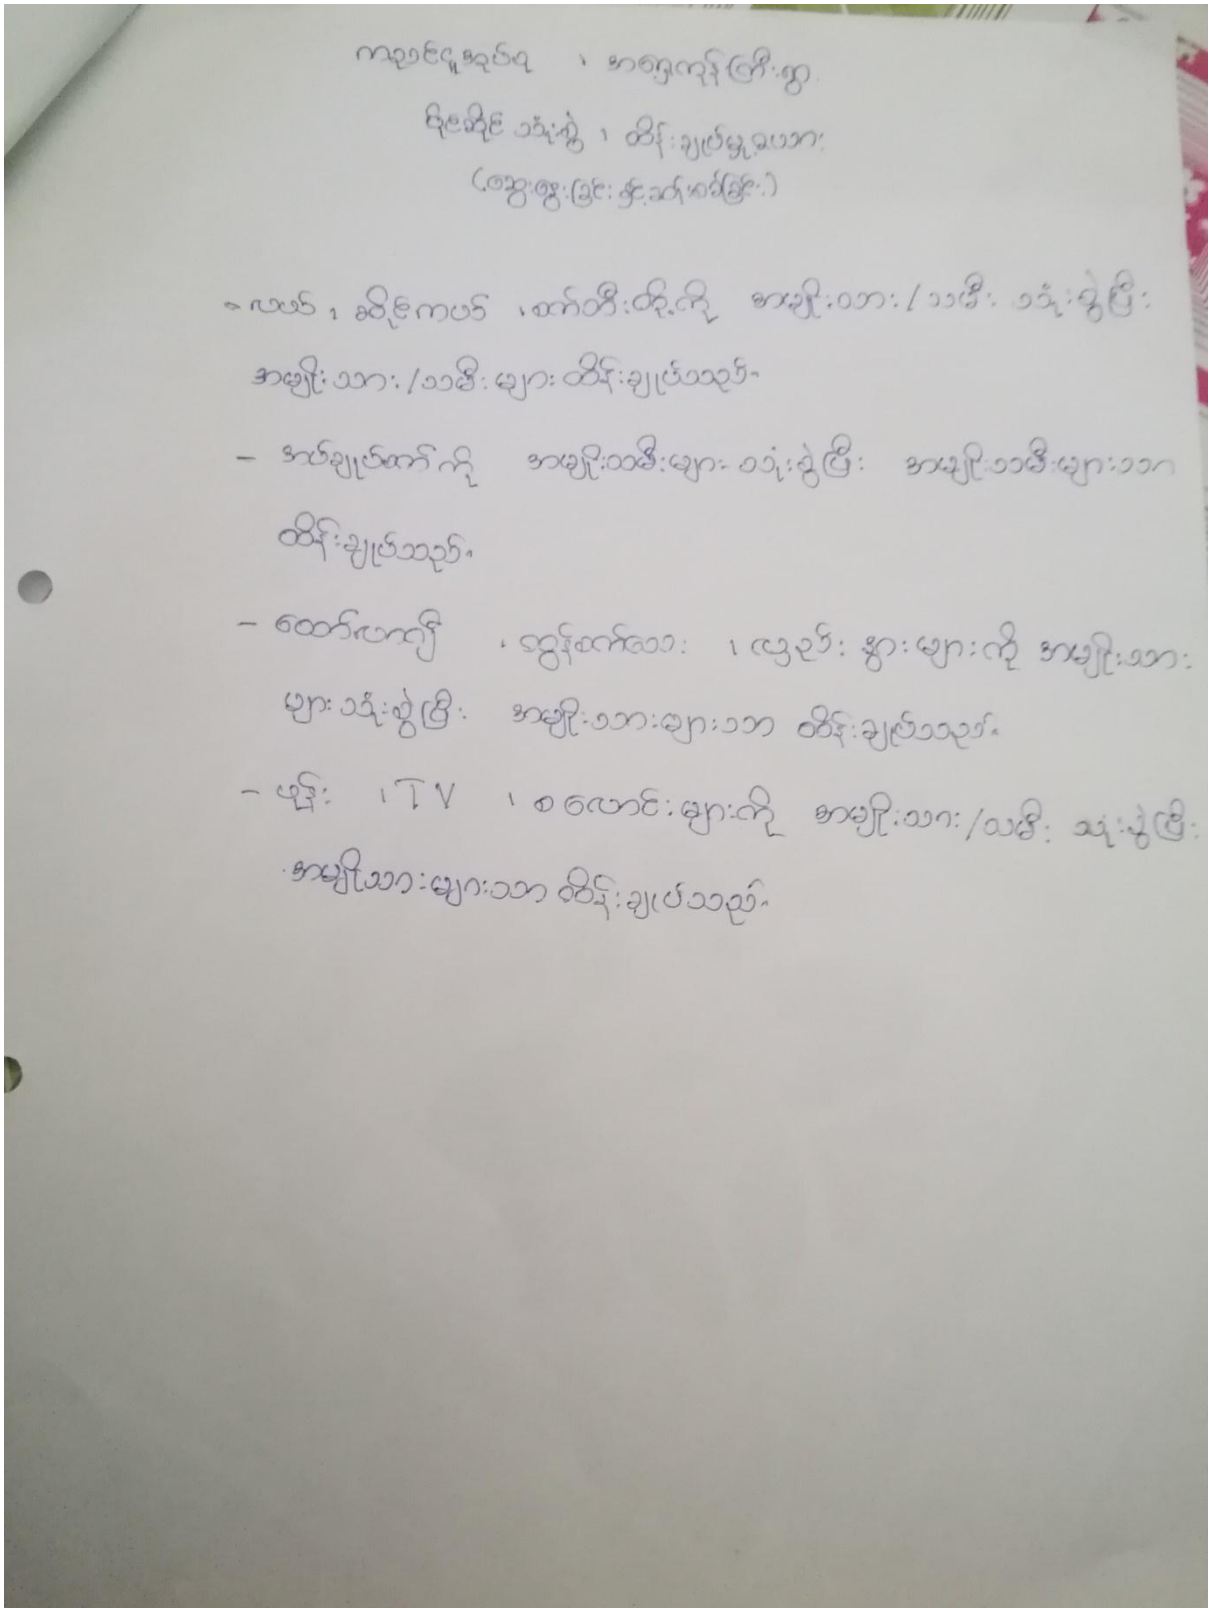 ကညင်ငူအုပ်စု ၊ အရှေ့ကုန်းကြီးရွာ
ပိုင်ဆိုင်သုံးစွဲ ၊ ထိန်းချုပ်မှုဇယား
(ဆွေးနွေးခြင်းနှင့်ခတ်းစစ်ခြင်း)
- လယ် ၊ ဆိုင်ကယ် ၊ စက်ဘီးတို့ကို အမျိုးသား/သမီး သုံးစွဲပြီး
အမျိုးသား/သမီးများ ထိန်းချုပ်သည်။
- အပ်ချုပ်စက်ကို အမျိုးသမီးများ သုံးစွဲပြီး အမျိုးသမီးများသာ
ထိန်းချုပ်သည်။
- ထော်လာဂျီ ၊ ထွန်စက်လေး ၊ လှည်း နွားများကို အမျိုးသား
များသုံးစွဲပြီး အမျိုးသားများသာ ထိန်းချုပ်သည်။
- ဖုန်း ၊ TV ၊ စလောင်းများကို အမျိုးသား/သမီး သုံးစွဲပြီး
အမျိုသားများသာ ထိန်းချုပ်သည်။